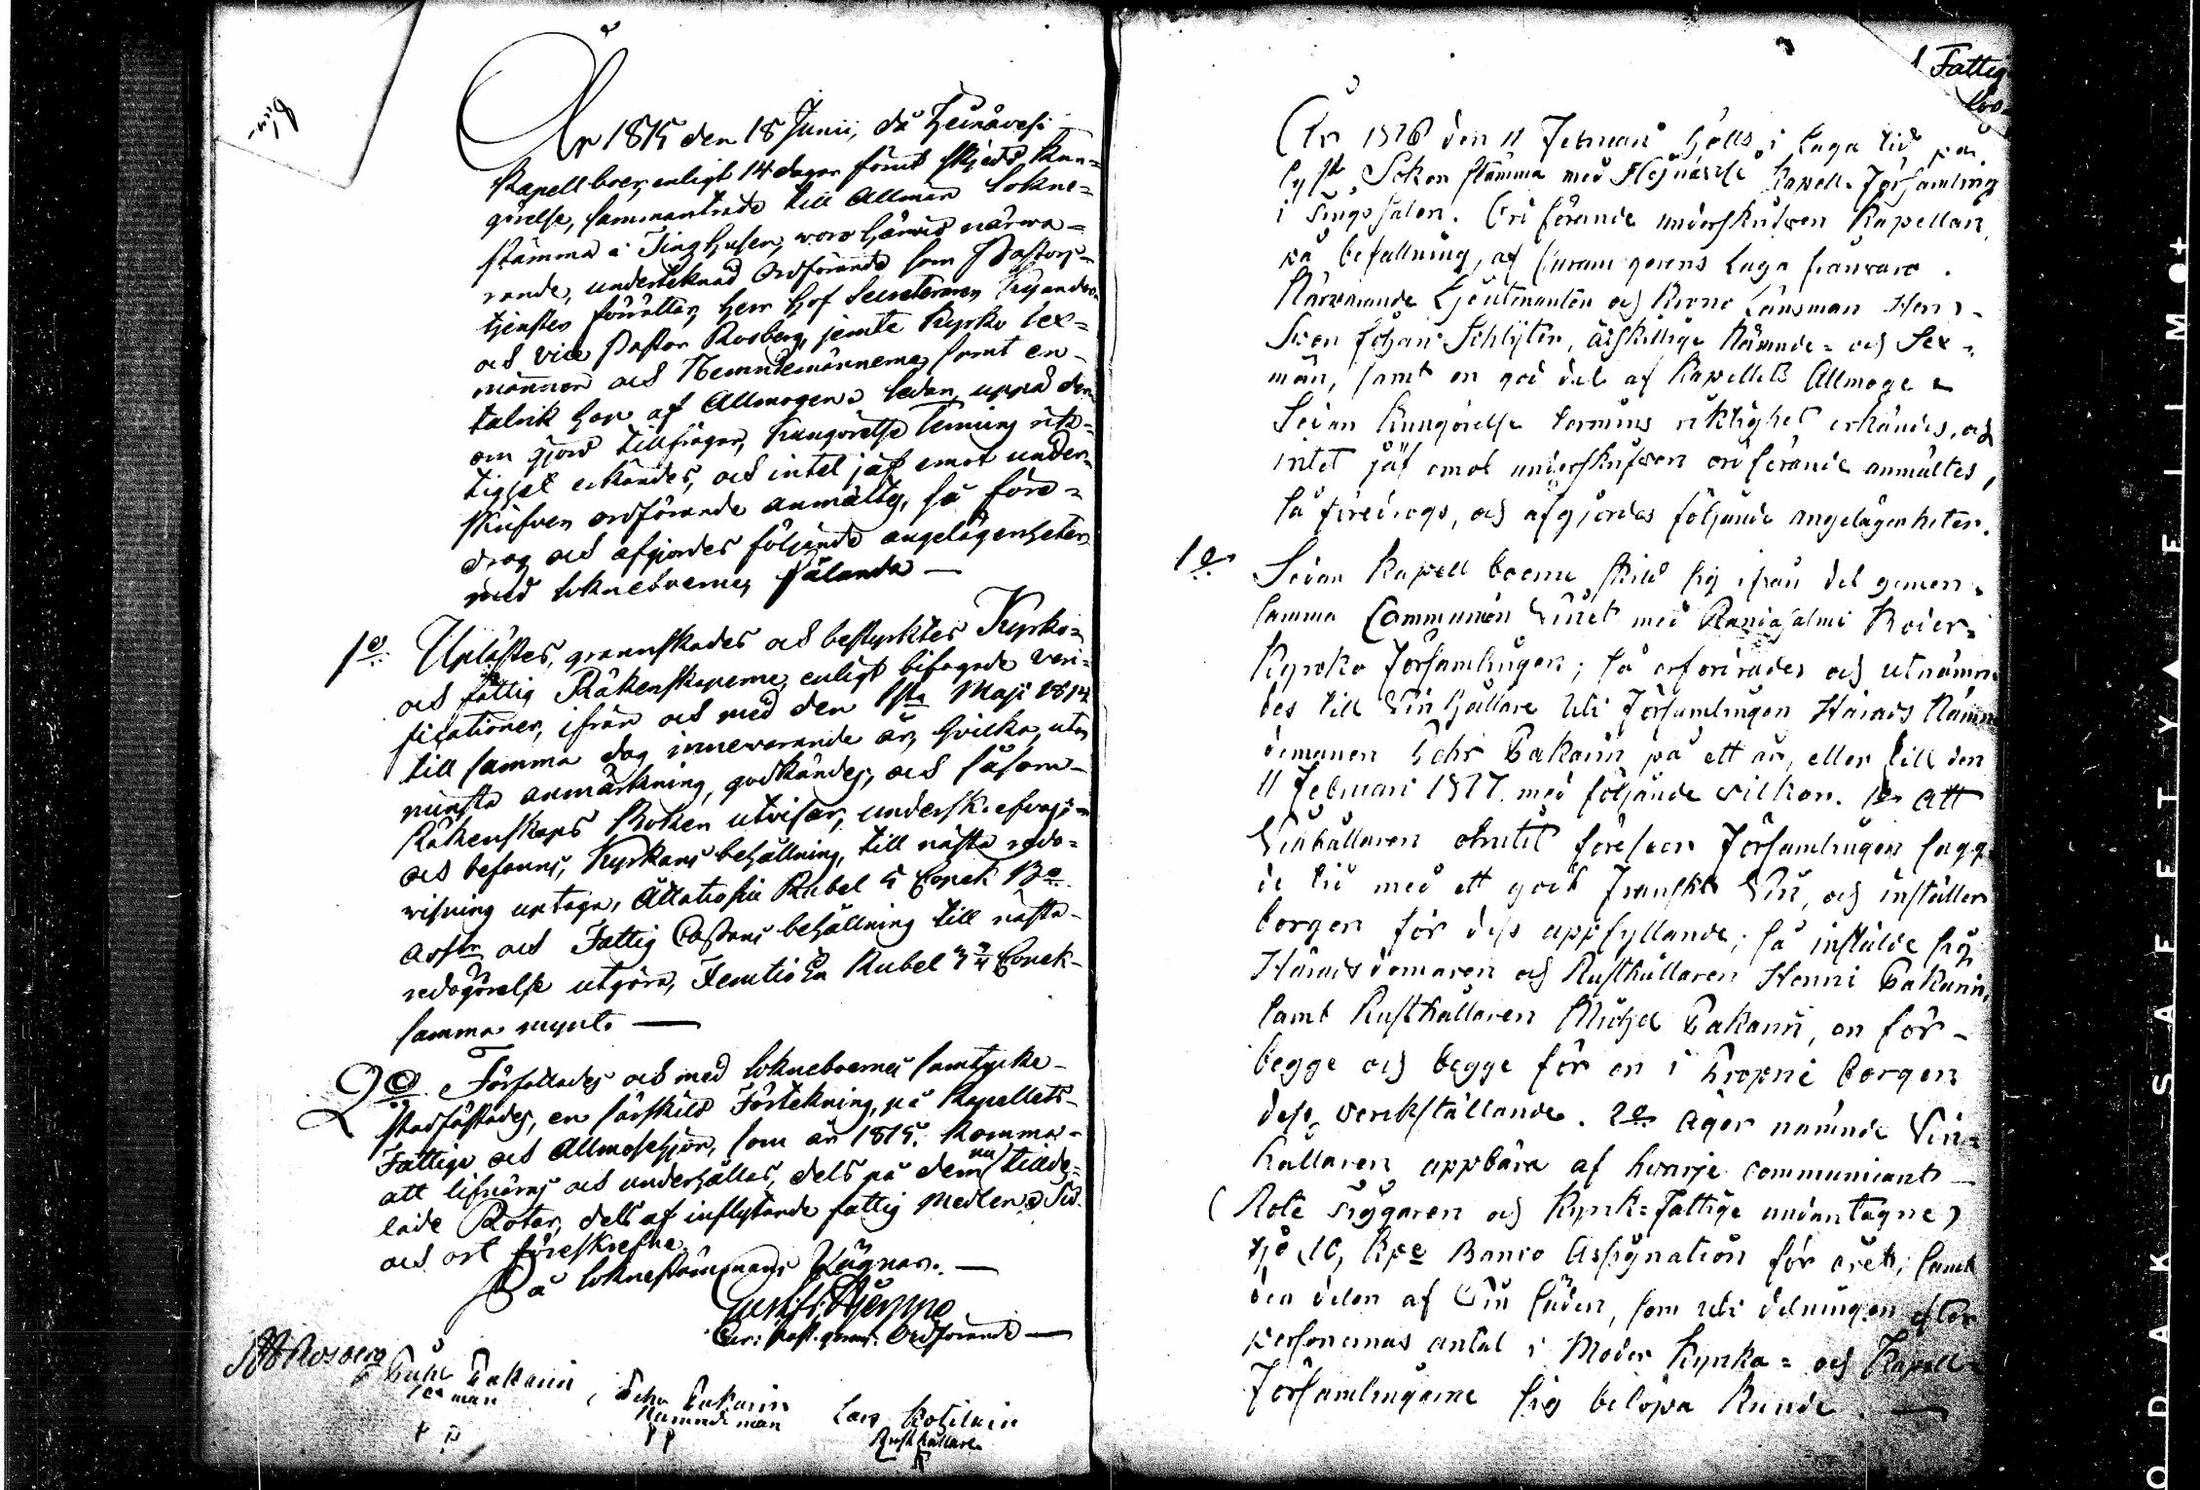 År 1815 den 18 Junii, då Heinävesi
Kapellboer, enligt 14 dagar förut skjedd Kun=
görelse, sammanträde till Allmän Sokne=
stämma i Tinghuset, voro härvid närva=
rande, undertecknad Ordförande som Pastors=
tjensten förrättar, Herr Hof Secreteraren
och Vice Pastor Rosberg, jemte Kyrko Sex=
männer och Nemndemännerna, samt en
talrik hop af Allmogen. Sedan, uppå der
om gjord tillfrågan, kungörelse Termins rik=
tighet erkändes, och intet jäf emot under=
skrifven ordförande anmältes, så före=
drogs och afgjordes följande angelägenheter
med sokneboerne, sålunda —
1o Uplästes, granskades och bestyrktes Kyrko=
och fattig Räkenskaperne, enligt bifogade veri=
ficationer, ifrån och med den 1sta Maji 1814
till samma dag innevarande år, hvilka, utan
minsta anmärkning, godkändes, och såsom
Räkenskaps Boken utvisar, underskrefvos;
och befanns, Kyrkans behållning, till nästa redo=
visning uptaga, Rubel 5 Copek Bco
Assn och Fattig Cassans behållning till nästa
redogörelse utgöra, Femtio En Rubel 3¾ Copek
samma mynt. —
2o Författades och med soknebornes samtycke
stadfästades, en särskild Förtekning, på Kapellets
Fattige och Allmosehjon, som år 1815. komma
att lifnäras och underhållas, dels på dem nu tillde=
lade Rotar, dels af inflytande fattig Medlen. Tid
och ort föreskrefne.
På Soknestämmans Vägnar. —
Ordförande —
Rosberg
Pakarin
Sexman
Pakarin
Nämndeman
Lars Kotilain
Rusthållare
Fattig
År 1816 den 11 Februari hölls i laga tid på
lyst Sokenstämma med Hejnävesi Kapell-Församling
i Tingssalen. Ordförande underskrifven Kapellan,
på befallning, af Curam gerens laga frånvaro.
Närvarande Ljeutnanten och Krono Länsman Herr
Sven Johan Schlyter, åtskillige Nämnde= och Sex=
män, samt en god del af Kapellets Allmoge.
Sedan Kungörelse termins riktighet erkändes, och
intet jäf emot underskrifven ordförande anmältes,
så föredrogs, och afgjordes följande angelägenheter.
1o Sedan Kapell boerne skilt sig ifrån det gemen=
samma Communion Vinet med Randasalmi Moder=
Kyrko Församlingen; så erfordrades och utnämn=
des till Vinhållare uti Församlingen Härads Nämn
demannen Pakarin på ett år, eller till den
11 Februari 1817. med följande vilkor. 1o att
Vinhållaren förser Församlingen
med ett godt Franskt Vin, och inställer
borgen för dess uppfyllande; så instälde sig
Häradsdomaren och Rusthållaren Henric Pakarin,
samt Rusthållaren Michel Pakarin, en för
begge och begge för en i borgen
dess verkställande. 2o äger nämnde Vin=
hållaren uppbära af hvarje communicant
(Rote tiggaren och Kyrk=Fattige undantagne)
tjo 20, Kpc Banco Assignation för året; samt
den delen af Vin Säden, som uti delningen efter
personernas antal i Moder Kyrka= och Kapell=
Församlingarne sig belöpa kunde. —